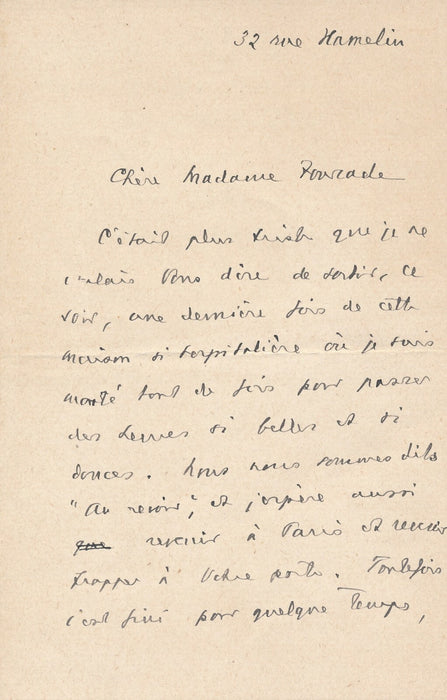 32 rue Hamelin
Chère Madame Fourcade
C'était plus triste que je ne
voulais Vous dire de sortir, ce
soir, une dernière fois de cette
maison si hospitalière où je suis
monté tant de fois pour passer
des heures si belles et si
douces. Nous nous sommes dits
"Au revoir", et j'espère aussi
que revenir à Paris et revenir
frapper à Votre porte. Toutefois
c'est fini pour quelque temps,